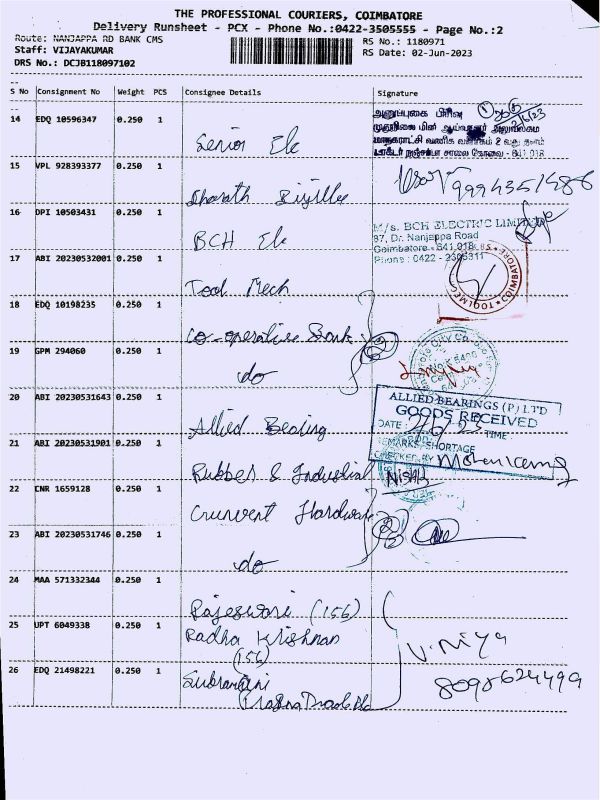 THE PROFESSIONAL COURIERS, COIMBATORE
Delivery Runsheet - PCX - Phone No.:0422-3505555 - Page No.:2
Route: NANJAPPA RD BANK CMS
RS No.: 1180971
Staff: VIJAYAKUMAR
RS Date: 02-Jun-2023
DRS No.: DCJB118097102
S No Consignment No Weight PCS Consignee Details Signature
14 EDQ 10596347 0.250 1
அனுப்புகை பிரிவு
2/6/23
Senior Ele
15 VPL 928393377 0.250 1
9994351486
Bharath
16 DPI 10503431 0.250 1
BCH Ele
M/s. BCH ELECTRIC LIMITED
87, Dr. Nanjappa Road
Coimbatore - 641 018
Phone : 0422 - 2305311
17 ABI 20230532001 0.250 1
Tool Mech
TOOLMEC COIMBATORE
18 EDQ 10198235 0.250 1
Co-operative Bank
19 GPM 294060 0.250 1
do
20 ABI 20230531643 0.250 1
Allied Bearing
ALLIED BEARINGS (P) LTD
GOODS RECEIVED
DATE : 2/6/23 TIME
REMARKS/SHORTAGE
CHECKED BY
21 ABI 20230531901 0.250 1
Rubber & Industrial
22 CNR 1659128 0.250 1
Hardware
23 ABI 20230531746 0.250 1
do
24 MAA 571332344 0.250 1
Rajeswari (156)
25 UPT 6049338 0.250 1
Radha Krishnan
(156)
V. Niya
8098624499
26 EDQ 21498221 0.250 1